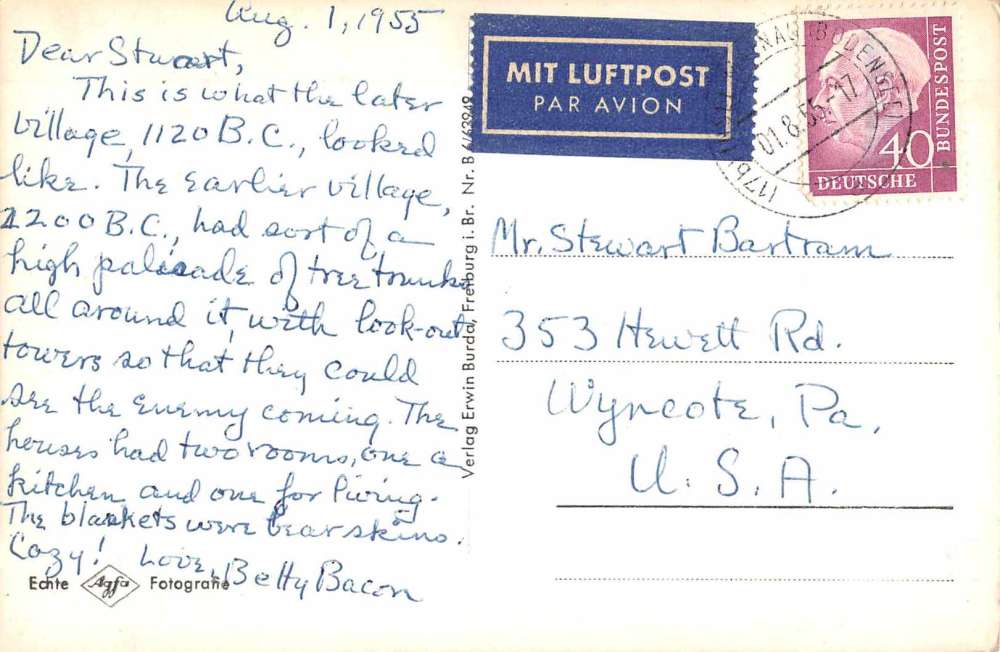 Aug. 1, 1955
Dear Stuart,
This is what the later
village, 1120 B.C., looked
like. The earlier village,
2200 B.C., had sort of a
high palisade of tree trunks
all around it, with look-out
towers so that they could
see the enemy coming. The
houses had two rooms, one a
kitchen and one for living.
The blankets were bear skins.
Cozy! Love, Betty Bacon
Echte Agfa Fotografie
Verlag Erwin Burda, Freiburg i. Br. Nr. B
MIT LUFTPOST
PAR AVION
01.8.55.-17
(17b)
BODENSEE
40
DEUTSCHE
BUNDESPOST
Mr. Stewart Bartram
353 Hewett Rd.
Wyncote, Pa.
U. S. A.